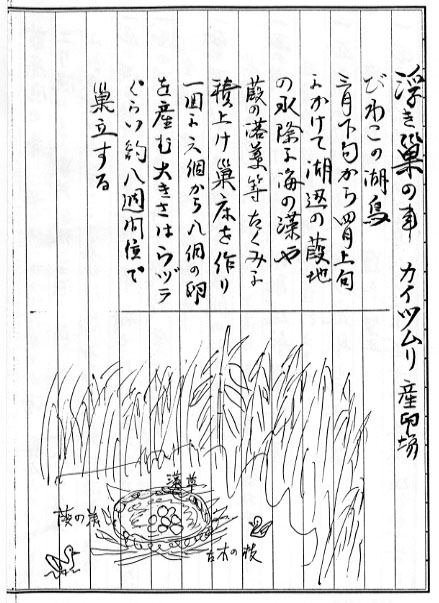 浮き巣の事 カイツムリ 産卵場
びわこの湖鳥
三月下旬から四月上旬
にかけて湖辺の葭地
の水際に海の藻や
葭の落葉等たくみに
積上げ巣床を作り
一回に六個から八個の卵
を産む大きさはうづら
ぐらい約八週間位で
巣立する
藻草
葭の葉
古木の枝